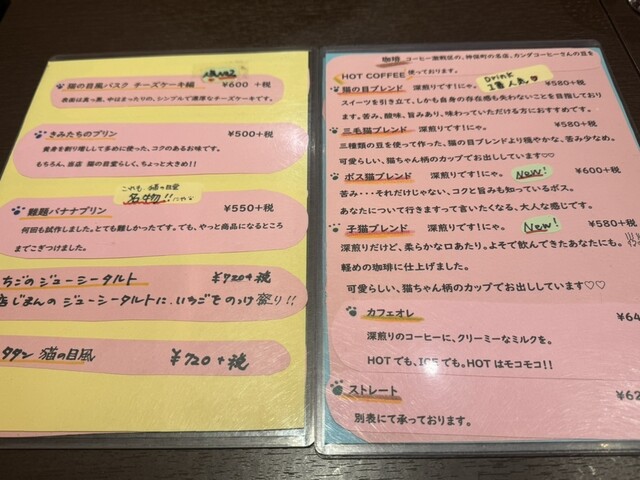 猫の目風バスク チーズケーキ編 ¥600 +税
表面は真っ黒、中はまったりの、シンプルで濃厚なチーズケーキです。
きみたちのプリン ¥500+税
黄身を割り増しして多めに使った、コクのあるお味です。
もちろん、当店 猫の目堂らしく、ちょっと大きめ!!
これも 猫の目堂
名物!!にゃど
難題バナナプリン ¥550+税
何回も試作しました。とても難しかったです。でも、やっと商品になるところ
までこぎつけました。
ちごのジューシータルト ¥720+税
店じまんのジューシータルトに、いちごをのっけ盛り!!
タタン 猫の目風 ¥720+税
珈琲 コーヒー激戦区の、神保町の名店、カンダコーヒーさんの豆を
HOT COFFEE 使っております。
Drink
1番人気♥
猫の目ブレンド 深煎りです!にゃ。 ¥580+税
スイーツを引き立て、しかも自身の存在感も失わないことを目指しており
ます。苦み、酸味、旨みあり、味わっていただける方におすすめです。
三毛猫ブレンド 深煎りです!にゃ。 ¥580+税
三種類の豆を使って作った、猫の目ブレンドより穏やかな、苦み少なめ。
可愛らしい、猫ちゃん柄のカップでお出ししています♡♡
ボス猫ブレンド 深煎りです!にゃ。 New! ¥600+税
苦み・・・それだけじゃない、コクと旨みも知っているボス。
あなたについて行きますって言いたくなる、大人な感じです。
子猫ブレンド 深煎りです!にゃ。 New! ¥580+税
深煎りだけど、柔らかな口あたり。よそで飲んできたあなたにも。
軽めの珈琲に仕上げました。
可愛らしい、猫ちゃん柄のカップでお出ししています♡♡
カフェオレ ¥64
深煎りのコーヒーに、クリーミーなミルクを。
HOTでも、ICEでも。HOTはモコモコ!!
ストレート ¥62
別表にて承っております。